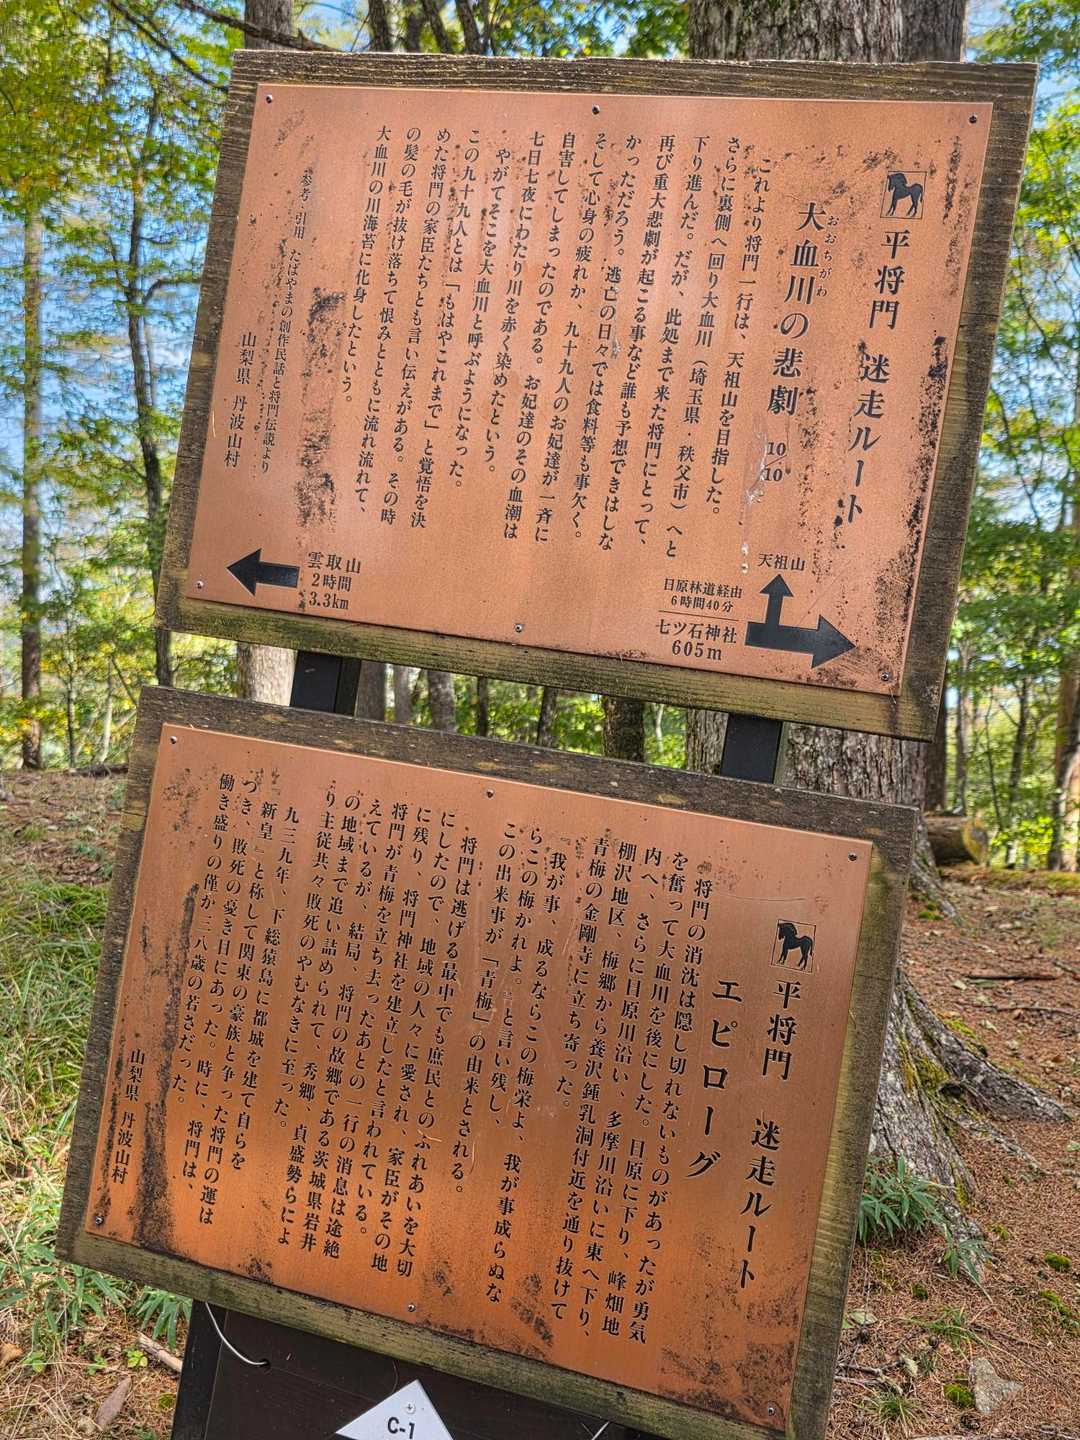 平将門 迷走ルート
大血川の悲劇 10/10
おおちがわ
これより将門一行は、天祖山を目指した。
さらに裏側へ回り大血川(埼玉県・秩父市)へと
下り進んだ。だが、此処まで来た将門にとって、
再び重大悲劇が起こる事など誰も予想できはしな
かっただろう。逃亡の日々では食料等も事欠く。
そして心身の疲れか、九十九人のお妃達が一斉に
自害してしまったのである。お妃達のその血潮は
七日七夜にわたり川を赤く染めたという。
やがてそこを大血川と呼ぶようになった。
この九十九人とは「もはやこれまで」と覚悟を決
めた将門の家臣たちとも言い伝えがある。その時
の髪の毛が抜け落ちて恨みとともに流れ流れて、
大血川の川海苔に化身したという。
参考・引用 たばやまの創作民話と将門伝説より
山梨県 丹波山村
雲取山
2時間
3.3km
天祖山
日原林道経由
6時間40分
七ツ石神社
605m
平将門 迷走ルート
エピローグ
将門の消沈は隠し切れないものがあったが勇気
を奮って大血川を後にした。日原に下り、峰畑地
内へ、さらに日原川沿い、多摩川沿いに東へ下り、
棚沢地区、梅郷から養沢鍾乳洞付近を通り抜けて
青梅の金剛寺に立ち寄った。
『我が事、成るならこの梅栄よ、我が事成らぬな
らこの梅かれよ。』と言い残し、
この出来事が「青梅」の由来とされる。
将門は逃げる最中でも庶民とのふれあいを大切
にしたので、地域の人々に愛され、家臣がその地
に残り、将門神社を建立したと言われている。
将門が青梅を立ち去ったあとの一行の消息は途絶
えているが、結局、将門の故郷である茨城県岩井
の地域まで追い詰められて、秀郷、貞盛勢らによ
り主従共々敗死のやむなきに至った。
九三九年、下総猿島に都城を建て自らを
『新皇』と称して関東の豪族と争った将門の運は
つき、敗死の憂き日にあった。時に、将門は、
働き盛りの僅か三八歳の若さだった。
山梨県 丹波山村
C-1